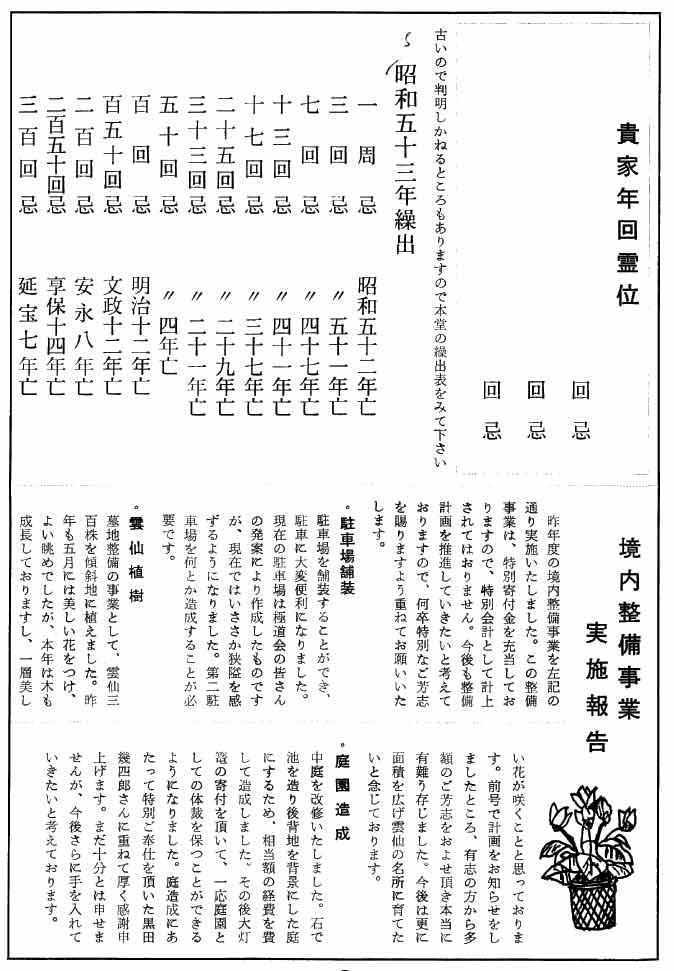 貴家年回霊位
回忌
回忌
回忌
古いので判明しかねるところもありますので本堂の繰出表をみて下さい
昭和五十三年繰出
一周忌 昭和五十二年亡
三回忌 〃五十一年亡
七回忌 〃四十七年亡
十三回忌 〃四十一年亡
十七回忌 〃三十七年亡
二十五回忌 〃二十九年亡
三十三回忌 〃二十一年亡
五十回忌 〃四年亡
百回忌 明治十二年亡
百五十回忌 文政十二年亡
二百回忌 安永八年亡
二百五十回忌 享保十四年亡
三百回忌 延宝七年亡
境内整備事業
実施報告
昨年度の境内整備事業を左記の
通り実施いたしました。この整備
事業は、特別寄付金を充当してお
りますので、特別会計として計上
されてはおりません。今後も整備
計画を推進していきたいと考えて
おりますので、何卒特別なご芳志
を賜りますよう重ねてお願いいた
します。
。駐車場舗装
駐車場を舗装することができ、
駐車に大変便利になりました。
現在の駐車場は極道会の皆さん
の発案により作成したものです
が、現在ではいささか狭隘を感
ずるようになりました。第二駐
車場を何とか造成することが必
要です。
。雲仙植樹
墓地整備の事業として、雲仙三
百株を傾斜地に植えました。昨
年も五月には美しい花をつけ、
よい眺めでしたが、本年は木も
成長しておりますし、一層美し
い花が咲くことと思っておりま
す。前号で計画をお知らせをし
ましたところ、有志の方から多
額のご芳志をおよせ頂き本当に
有難う存じました。今後は更に
面積を広げ雲仙の名所に育てた
いと念じております。
。庭園造成
中庭を改修いたしました。石で
池を造り後背地を背景にした庭
にするため、相当額の経費を費
して造成しました。その後大灯
篭の寄付を頂いて、一応庭園と
しての体裁を保つことができる
ようになりました。庭造成にあ
たって特別ご奉仕を頂いた黒田
幾四郎さんに重ねて厚く感謝申
上げます。まだ十分とは申せま
せんが、今後さらに手を入れて
いきたいと考えております。